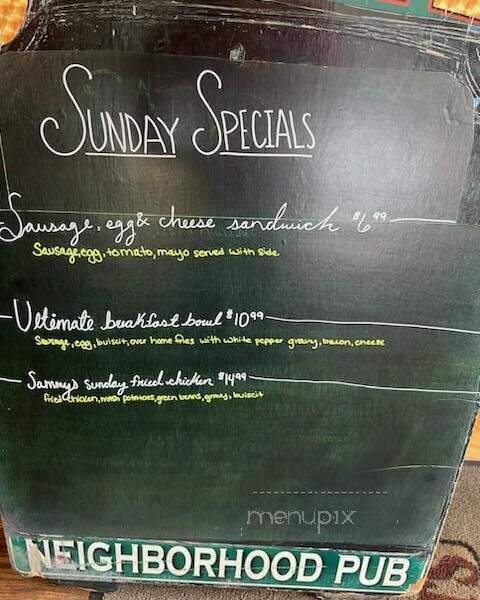 SUNDAY SPECIALS
Sausage, egg & cheese sandwich $6.99
Sausage, egg, tomato, mayo served with side
Ultimate breakfast bowl $10.99
Sausage, egg, buiscit, over home fries with white pepper gravy, bacon, cheese
Sammy's Sunday fried chicken $14.99
fried chicken, mash potatoes, green beans, gravy, buiscit
menupix
NEIGHBORHOOD PUB